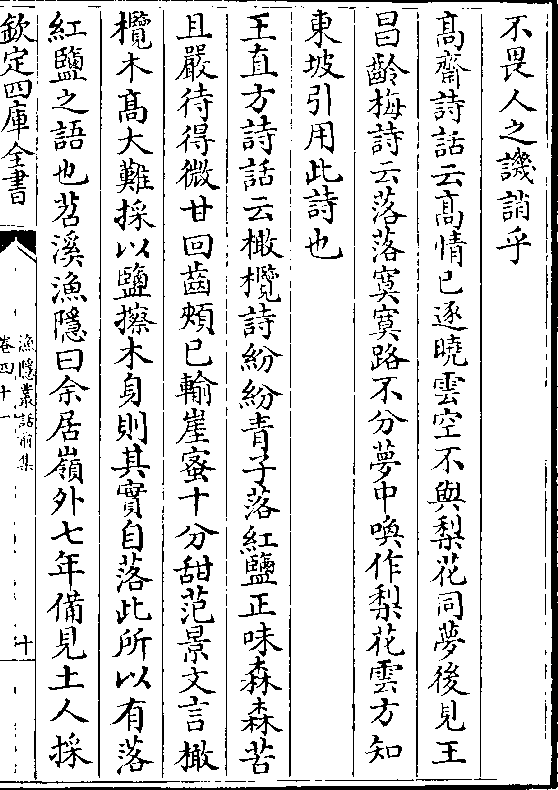 不畏人之譏誚乎
髙齋詩話云髙情已逐曉雲空不與梨花同夢後見王
昌齡梅詩云落落寞寞路不分夢中喚作梨花雲方知
東坡引用此詩也
王直方詩話云橄欖詩紛紛青子落紅鹽正味森森苦
且嚴待得微甘回齒頰已輸崖蜜十分甜范景文言橄
欖木髙大難採以鹽擦木身則其實自落此所以有落
紅鹽之語也苕溪漁隱曰余居嶺外七年備見土人採
欽定四庫全書
漁隱叢話前集
卷四十一
十